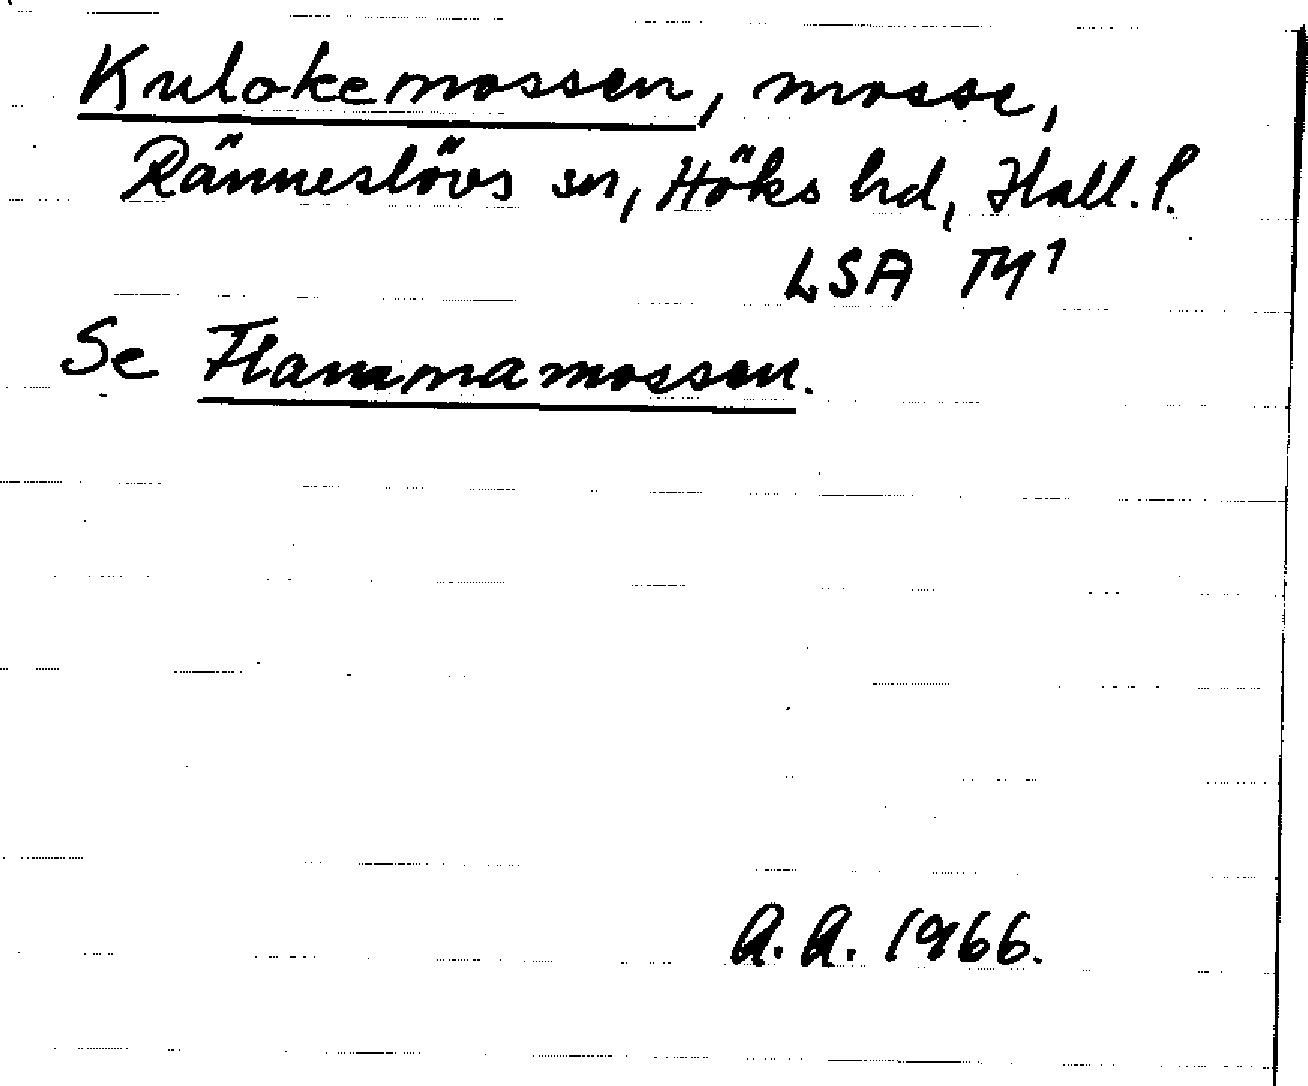 Kulokemossen, mosse,
Ränneslövs sn, Höks hd, Hall. l.
LSA TY¹
Se Flammamossen.
A.A. 1966.